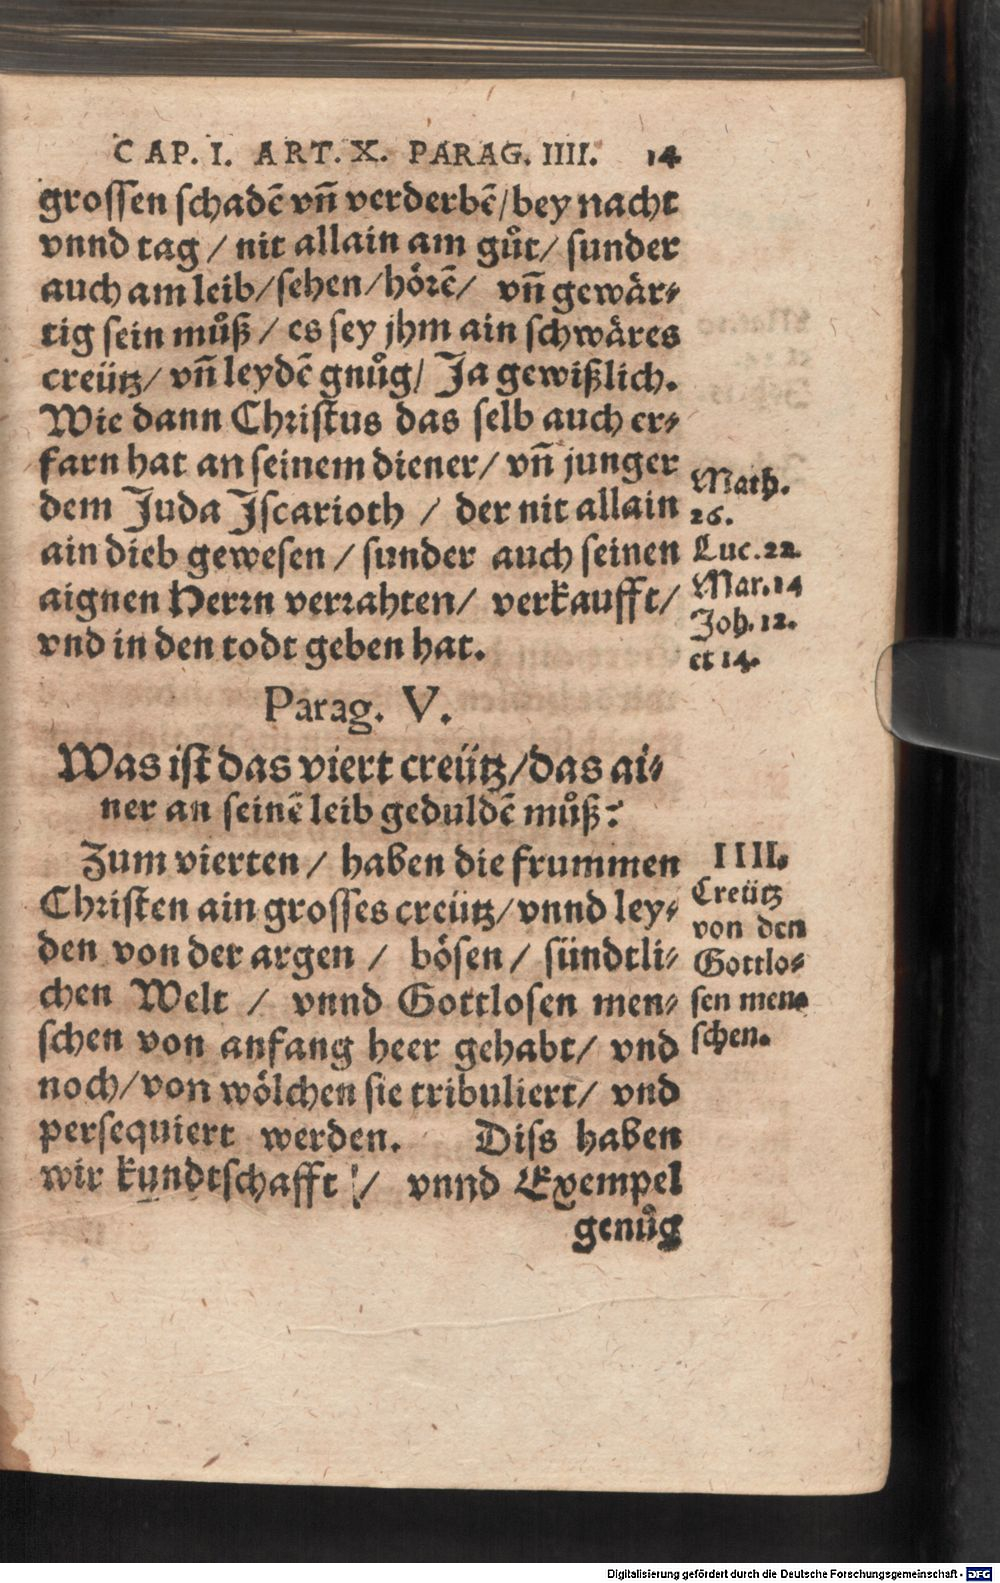 CAP. I. ART. X. PARAG. IIII. 14
grossen schadē vñ verderbē/bey nacht
vnnd tag / nit allain am gůt/ sunder
auch am leib/sehen/hörē/ vñ gewär-
tig sein můß / es sey jhm ain schwäres
creütz/ vñ leydē gnůg/ Ja gewißlich.
Wie dann Christus das selb auch er-
farn hat an seinem diener/ vñ junger
dem Juda Jscarioth / der nit allain
ain dieb gewesen / sunder auch seinen
aignen Herrn verrahten/ verkaufft/
vnd in den todt geben hat.
Math.
26.
Luc. 22.
Mar. 14
Joh. 12.
et 14.
Parag. V.
Was ist das viert creütz/das ai-
ner an seinē leib geduldē můß?
Zum vierten / haben die frummen
Christen ain grosses creütz/ vnnd ley-
den von der argen / bösen / sündtli-
chen Welt / vnnd Gottlosen men-
schen von anfang heer gehabt/ vnd
noch/von wölchen sie tribuliert/ vnd
persequiert werden. Diss haben
wir kundtschafft / vnnd Exempel
genůg
IIII.
Creütz
von den
Gottlo-
sen men-
schen.
Digitalisierung gefördert durch die Deutsche Forschungsgemeinschaft - DFG